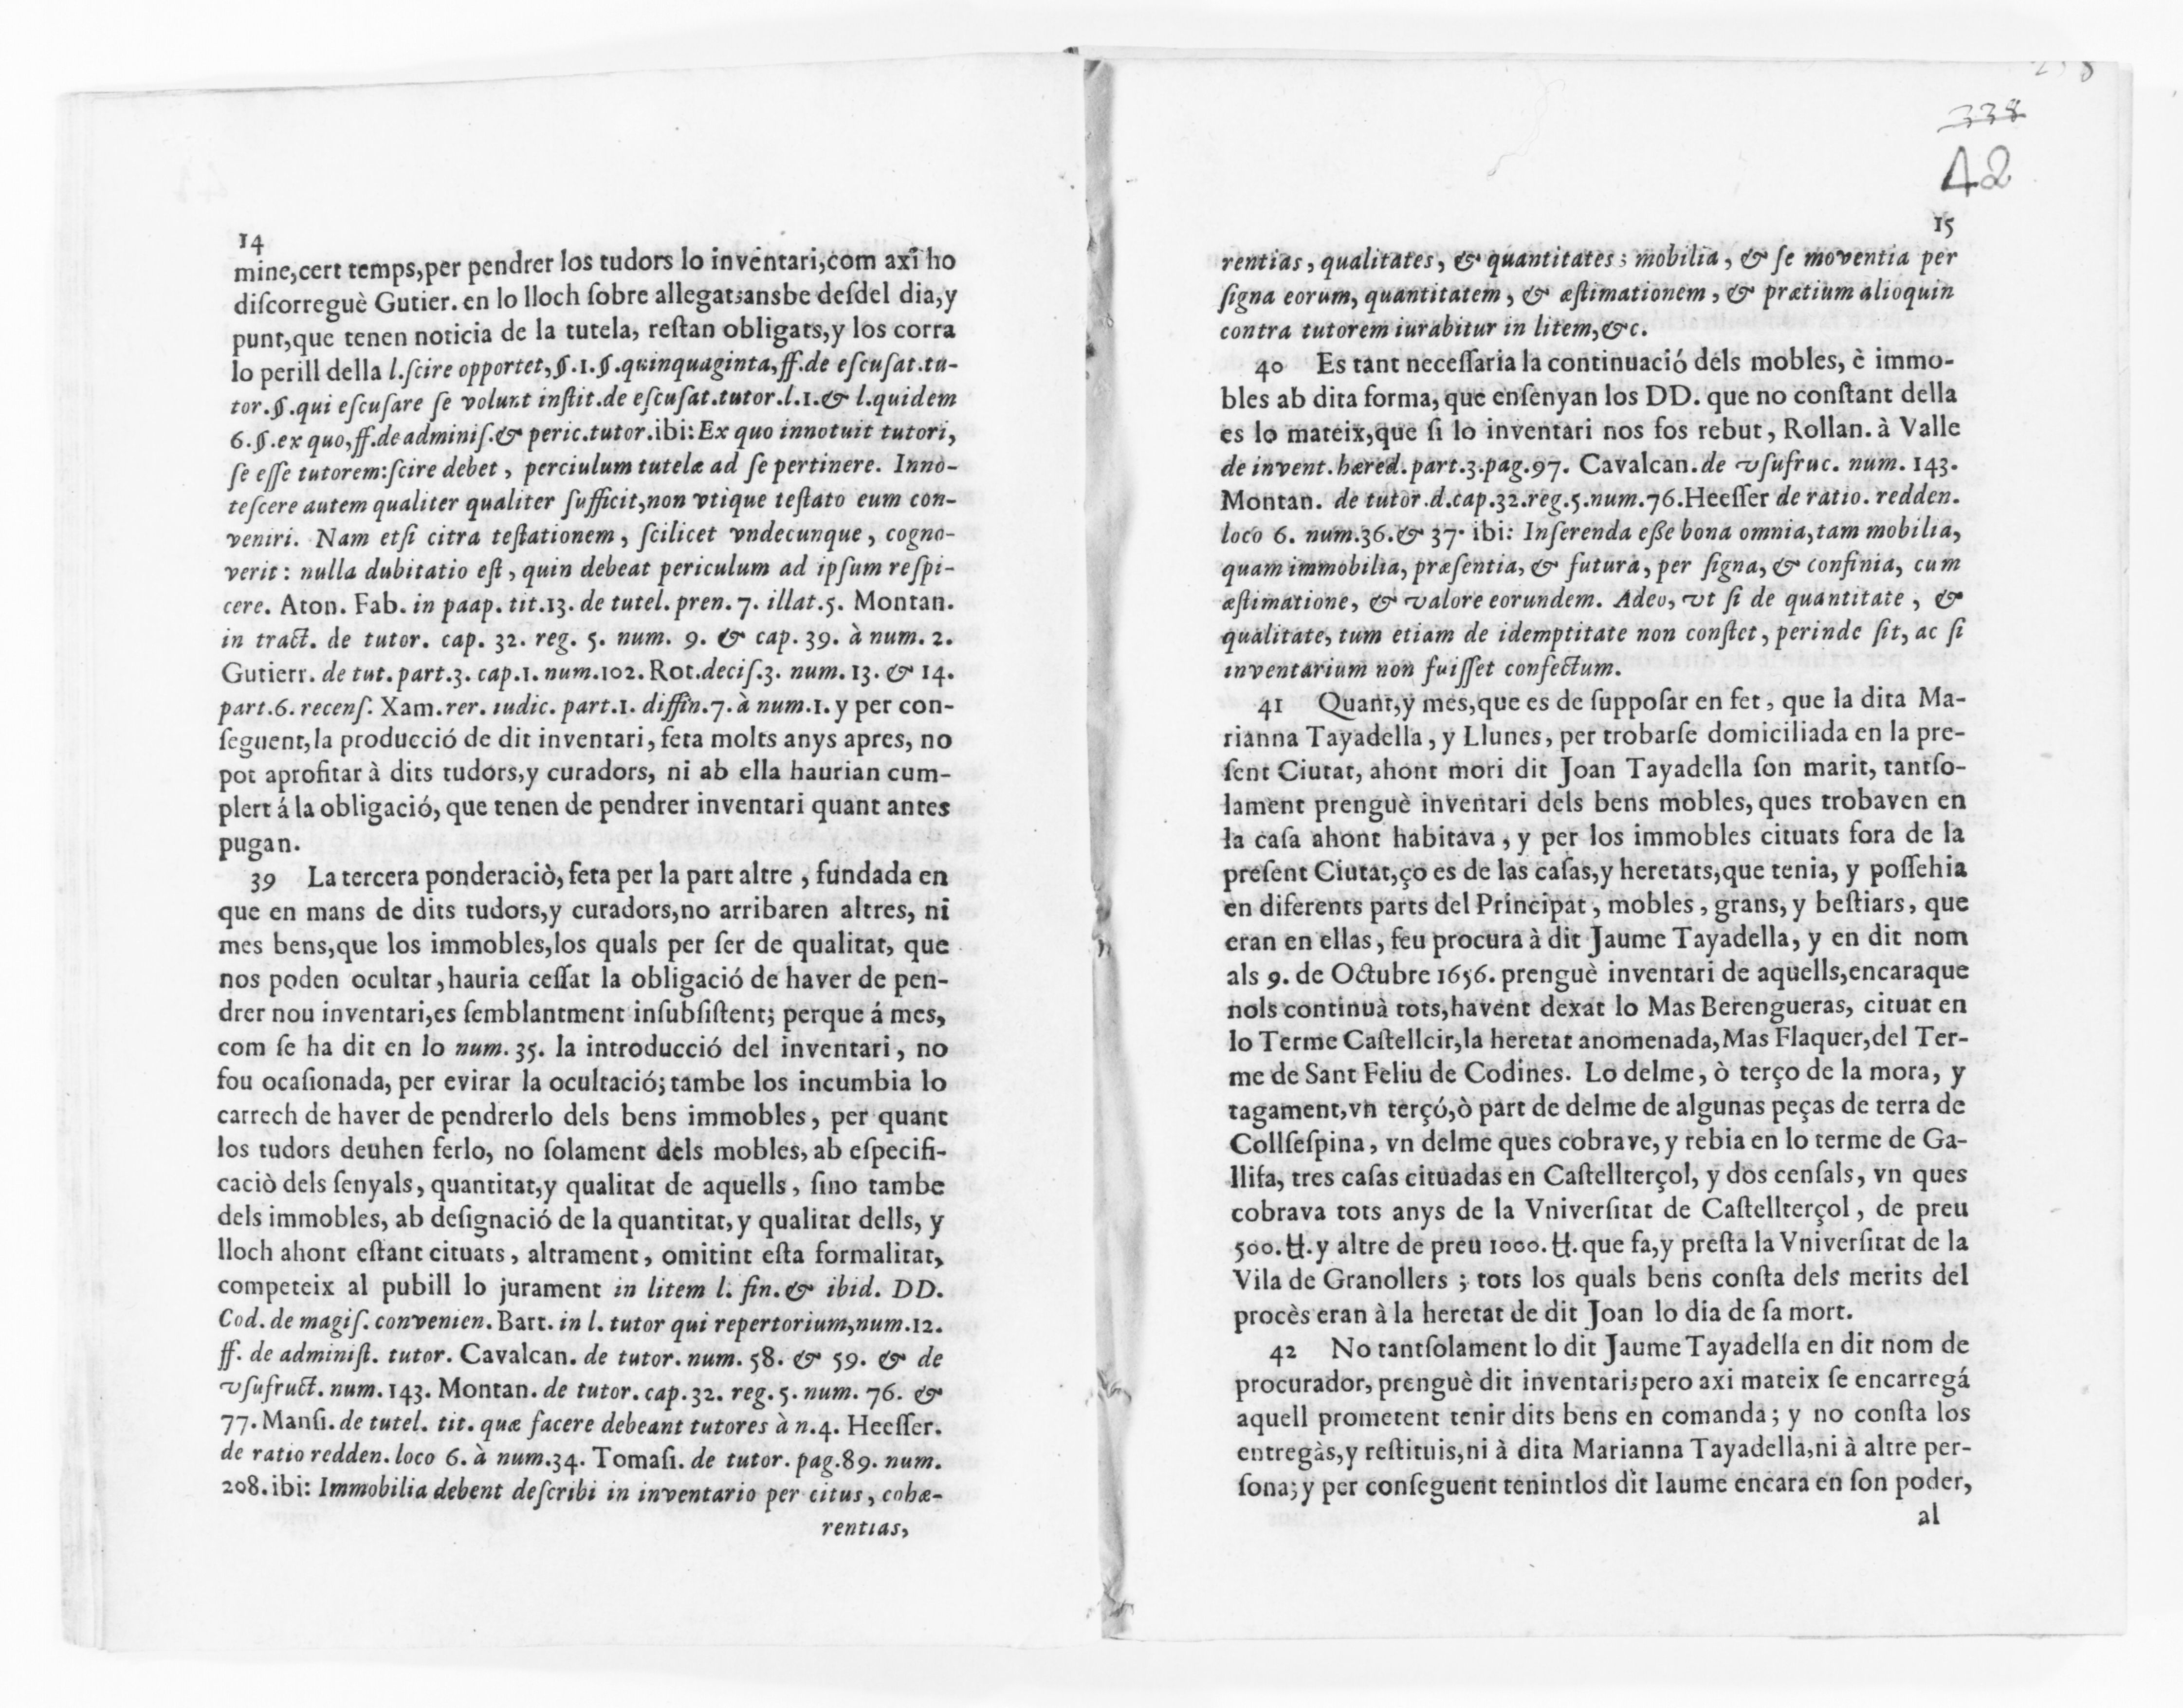 14
mine,cert temps,per pendrer los tudors lo inventari,com axî ho
diſcorreguè Gutier. en lo lloch ſobre allegat;ansbe deſdel dia,y
punt,que tenen noticia de la tutela, reſtan obligats,y los corra
lo perill della l.ſcire opportet,§.1.§.quinquaginta,ff.de eſcuſat.tu-
tor.§.qui eſcuſare ſe volunt inſtit.de eſcuſat.tutor.l.1.& l.quidem
6.§.ex quo,ff.de adminiſ.& peric.tutor.ibi:Ex quo innotuit tutori,
ſe eſſe tutorem:ſcire debet, perciulum tutelæ ad ſe pertinere. Inno-
teſcere autem qualiter qualiter ſufficit,non vtique teſtato eum con-
veniri. Nam etſi citra teſtationem, ſcilicet vndecunque, cogno-
verit: nulla dubitatio eſt, quin debeat periculum ad ipſum reſpi-
cere. Aton. Fab. in paap. tit.13. de tutel. pren. 7. illat.5. Montan.
in tract. de tutor. cap. 32. reg. 5. num. 9. & cap. 39. à num. 2.
Gutierr. de tut. part.3. cap.1. num.102. Rot.deciſ.3. num. 13. & 14.
part.6. recenſ. Xam.rer. iudic. part.1. diffin.7. à num.1. y per con-
ſeguent,la producció de dit inventari, feta molts anys apres, no
pot aprofitar à dits tudors,y curadors, ni ab ella haurian cum-
plert á la obligació, que tenen de pendrer inventari quant antes
pugan.
39 La tercera ponderaciò, feta per la part altre, fundada en
que en mans de dits tudors,y curadors,no arribaren altres, ni
mes bens,que los immobles,los quals per ſer de qualitat, que
nos poden ocultar, hauria ceſſat la obligació de haver de pen-
drer nou inventari,es ſemblantment inſubſiſtent; perque á mes,
com ſe ha dit en lo num. 35. la introducció del inventari, no
fou ocaſionada, per evirar la ocultació; tambe los incumbia lo
carrech de haver de pendrerlo dels bens immobles, per quant
los tudors deuhen ferlo, no ſolament dels mobles, ab eſpecifi-
caciò dels ſenyals, quantitat,y qualitat de aquells, ſino tambe
dels immobles, ab deſignació de la quantitat, y qualitat dells, y
lloch ahont eſtant cituats, altrament, omitint eſta formalitat,
competeix al pubill lo jurament in litem l. fin. & ibid. DD.
Cod. de magiſ. convenien. Bart. in l. tutor qui repertorium,num.12.
ff. de adminiſt. tutor. Cavalcan. de tutor. num. 58. & 59. & de
vſufruct. num. 143. Montan. de tutor. cap. 32. reg. 5. num. 76. &
77. Manſi. de tutel. tit. quæ facere debeant tutores à n.4. Heeſſer.
de ratio redden. loco 6. à num.34. Tomaſi. de tutor. pag.89. num.
208. ibi: Immobilia debent deſcribi in inventario per citus, cohæ-
rentias,
338
42
15
rentias, qualitates, & quantitates; mobilia, & ſe moventia per
ſigna eorum, quantitatem, & æſtimationem, & prætium alioquin
contra tutorem iurabitur in litem,&c.
40 Es tant neceſſaria la continuació dels mobles, è immo-
bles ab dita forma, que enſenyan los DD. que no conſtant della
es lo mateix,que ſi lo inventari nos fos rebut, Rollan. à Valle
de invent. hæred. part.3.pag.97. Cavalcan. de vſufruc. num. 143.
Montan. de tutor.d.cap.32.reg.5.num.76.Heeſſer de ratio. redden.
loco 6. num.36.& 37. ibi: Inſerenda eße bona omnia,tam mobilia,
quam immobilia, præſentia, & futura, per ſigna, & confinia, cum
æſtimatione, & valore eorundem. Adeo, vt ſi de quantitate, &
qualitate, tum etiam de idemptitate non conſtet, perinde ſit, ac ſi
inventarium non fuiſſet confectum.
41 Quant,y mes,que es de ſuppoſar en fet, que la dita Ma-
rianna Tayadella, y Llunes, per trobarſe domiciliada en la pre-
ſent Ciutat, ahont mori dit Joan Tayadella ſon marit, tantſo-
lament prenguè inventari dels bens mobles, ques trobaven en
la caſa ahont habitava, y per los immobles cituats fora de la
preſent Ciutat,ço es de las caſas,y heretats,que tenia, y poſſehia
en diferents parts del Principat, mobles, grans, y beſtiars, que
eran en ellas, feu procura à dit Jaume Tayadella, y en dit nom
als 9. de Octubre 1656. prenguè inventari de aquells,encaraque
nols continuà tots,havent dexat lo Mas Berengueras, cituat en
lo Terme Caſtellcir,la heretat anomenada,Mas Flaquer,del Ter-
me de Sant Feliu de Codines. Lo delme, ò terço de la mora, y
tagament,vn terçó,ò part de delme de algunas peças de terra de
Collſeſpina, vn delme ques cobrave, y rebia en lo terme de Ga-
llifa, tres caſas cituadas en Caſtellterçol, y dos cenſals, vn ques
cobrava tots anys de la Vniverſitat de Caſtellterçol, de preu
500.ꟼ.y altre de preu 1000.ꟼ.que fa,y preſta la Vniverſitat de la
Vila de Granollers; tots los quals bens conſta dels merits del
procès eran à la heretat de dit Joan lo dia de ſa mort.
42 No tantſolament lo dit Jaume Tayadella en dit nom de
procurador, prenguè dit inventari;pero axi mateix ſe encarregá
aquell prometent tenir dits bens en comanda; y no conſta los
entregàs,y reſtituis,ni à dita Marianna Tayadella,ni à altre per-
ſona;y per conſeguent tenintlos dit Iaume encara en ſon poder,
al